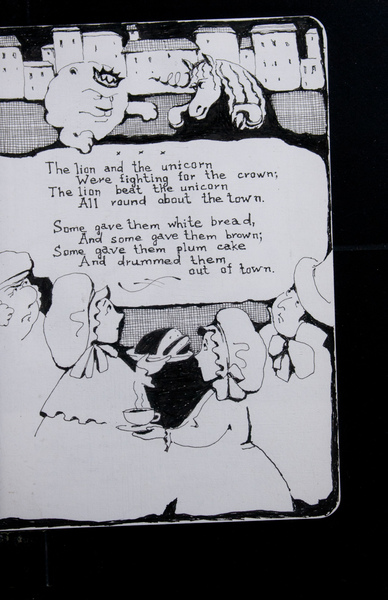 x x x
The lion and the unicorn
Were fighting for the crown;
The lion beat the unicorn
All round about the town.
Some gave them white bread,
And some gave them brown;
Some gave them plum cake
And drummed them
out of town.